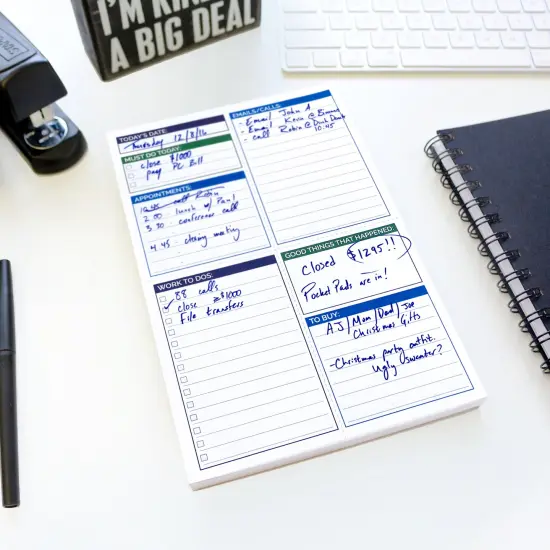 I'M KIN
A BIG DEAL
TODAY'S DATE:
Thursday 12/8/16
MUST DO TODAY:
close $1000
pay PC Bill
APPOINTMENTS:
10:45 call Robin
2:00 lunch w/ Paul
3:30 conference call
4:45 closing meeting
WORK TO DOS:
88 calls
close ≥$1000
File transfers
EMAILS/CALLS:
- Email John A
- Email Kevin @
- call Robin @ Dunk Donuts
10:45
GOOD THINGS THAT HAPPENED:
Closed $1295!!
Pocket Pads are in!
TO BUY:
AJ/Mom/Dad/Joe
Christmas Gifts
- Christmas party outfit.
Ugly sweater?